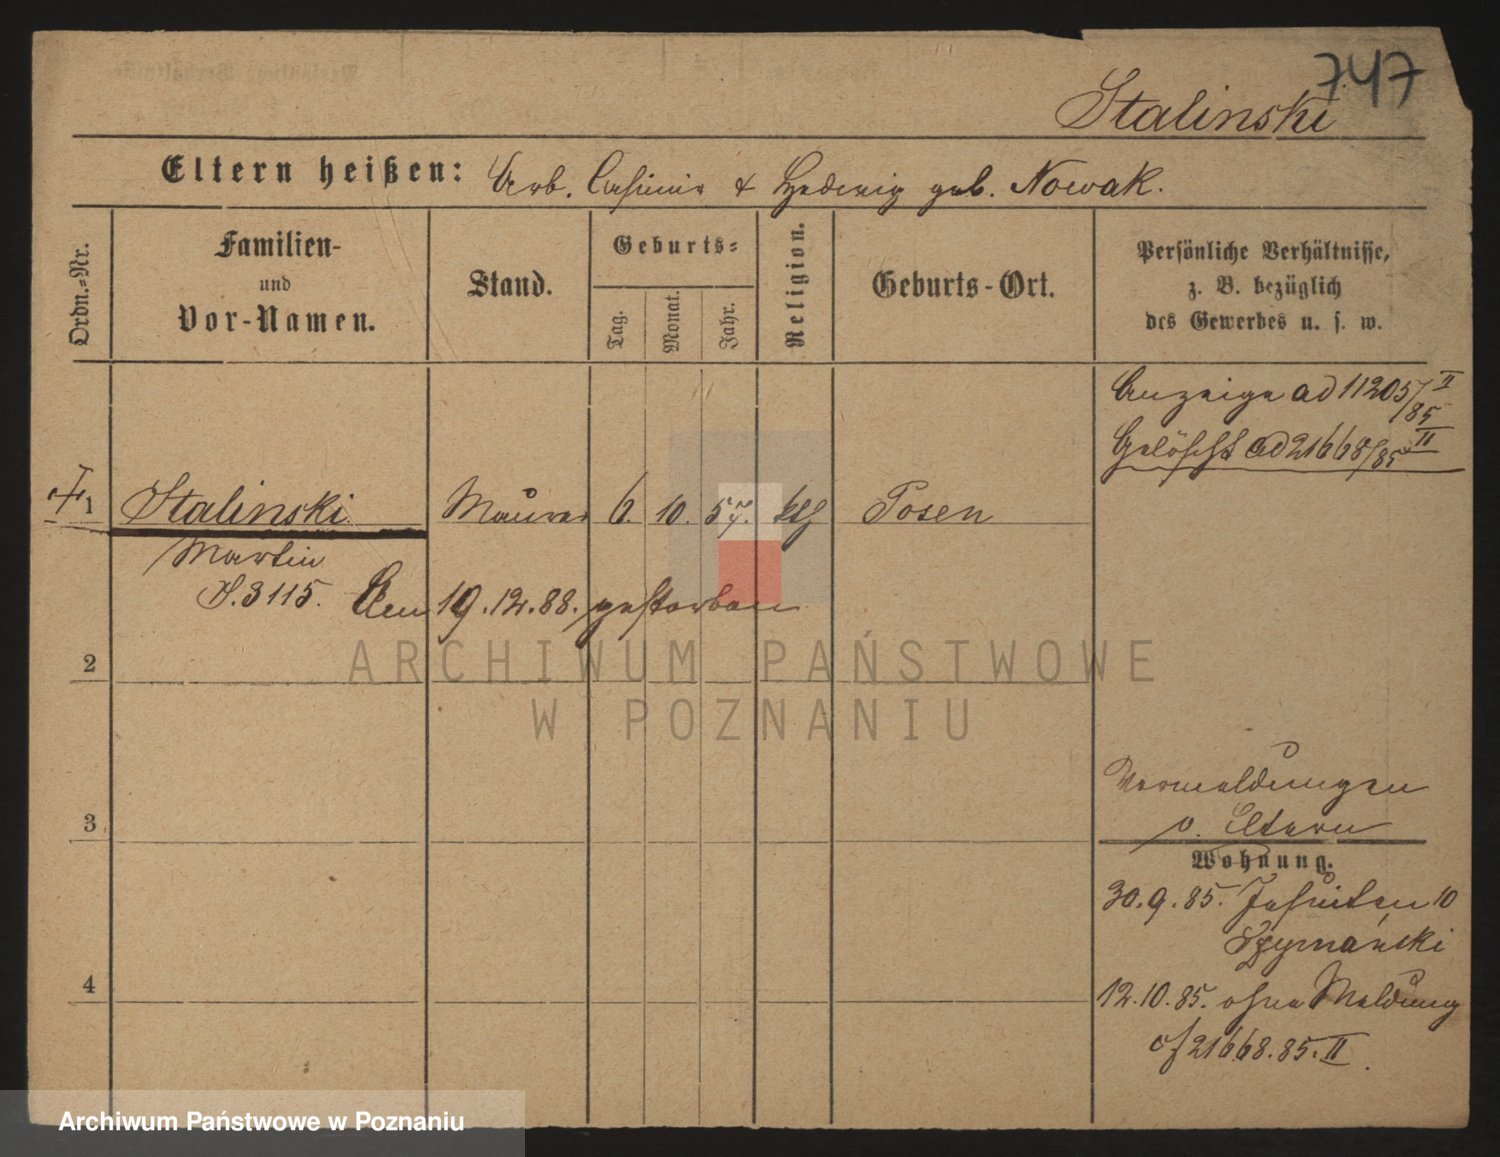 747
Stalinski
Eltern heißen: Arb. Casimir & Hedwig geb. Nowak.
Ordn.-Nr.
Familien-
und
Vor-Namen.
Stand.
Geburts-
Tag.
Monat.
Jahr.
Religion.
Geburts-Ort.
Persönliche Verhältnisse,
z. B. bezüglich
des Gewerbes u. s. w.
Anzeige ad 11205/85 II
Gelöscht ad 21668/85 II
1 Stalinski Maurer 6. 10. 57. ktl Posen
Martin
3115. Am 19.12.88. gestorben
2
3
4
Vermeldungen
v. Eltern
Wohnung.
30.9.85. Jesuiten 10
Szymański
12.10.85. ohne Meldung
cf 21668.85.II
ARCHIWUM PAŃSTWOWE
W POZNANIU
Archiwum Państwowe w Poznaniu